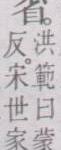 洪範曰蒙
省。
反。宋世家